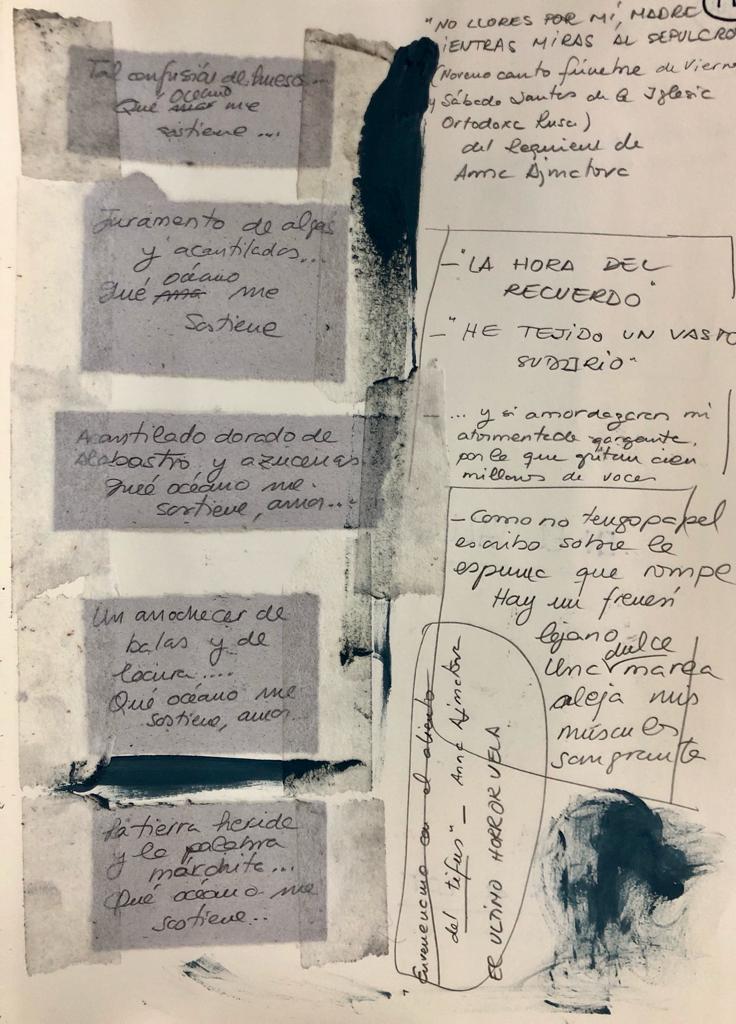 Tal confusión de huesos...
océano
Qué mar me
sostiene...
Juramento de algas
y acantilados...
océano
Qué me
Sostiene
Acantilado dorado de
alabastro y azucenas
Qué océano me
sostiene, amor...
Un anochecer de
balas y de
locura....
Qué océano me
sostiene, amor...
La tierra herida
y la palabra
marchita...
Qué océano me
sostiene..
"NO LLORES POR MÍ, MADRE
MIENTRAS MIRAS AL SEPULCRO
(Noveno canto fúnebre de Viern
y Sábado Santos de la Iglesia
Ortodoxa Rusa)
del Requiem de
Anna Ajmatova
- "LA HORA DEL
RECUERDO"
- "HE TEJIDO UN VASTO
SUDARIO"
- ... y si amordazaran mi
atormentada garganta,
por la que gritan cien
millones de voces
- Como no tengo papel
escribo sobre la
espuma que rompe
Hay un frenesí
lejano
dulce
Una marea
aleja mis
músculos
sangrante
"Envenename con el aliento
del tifus" - Anna Ajmatova
EL ULTIMO HORROR VELA